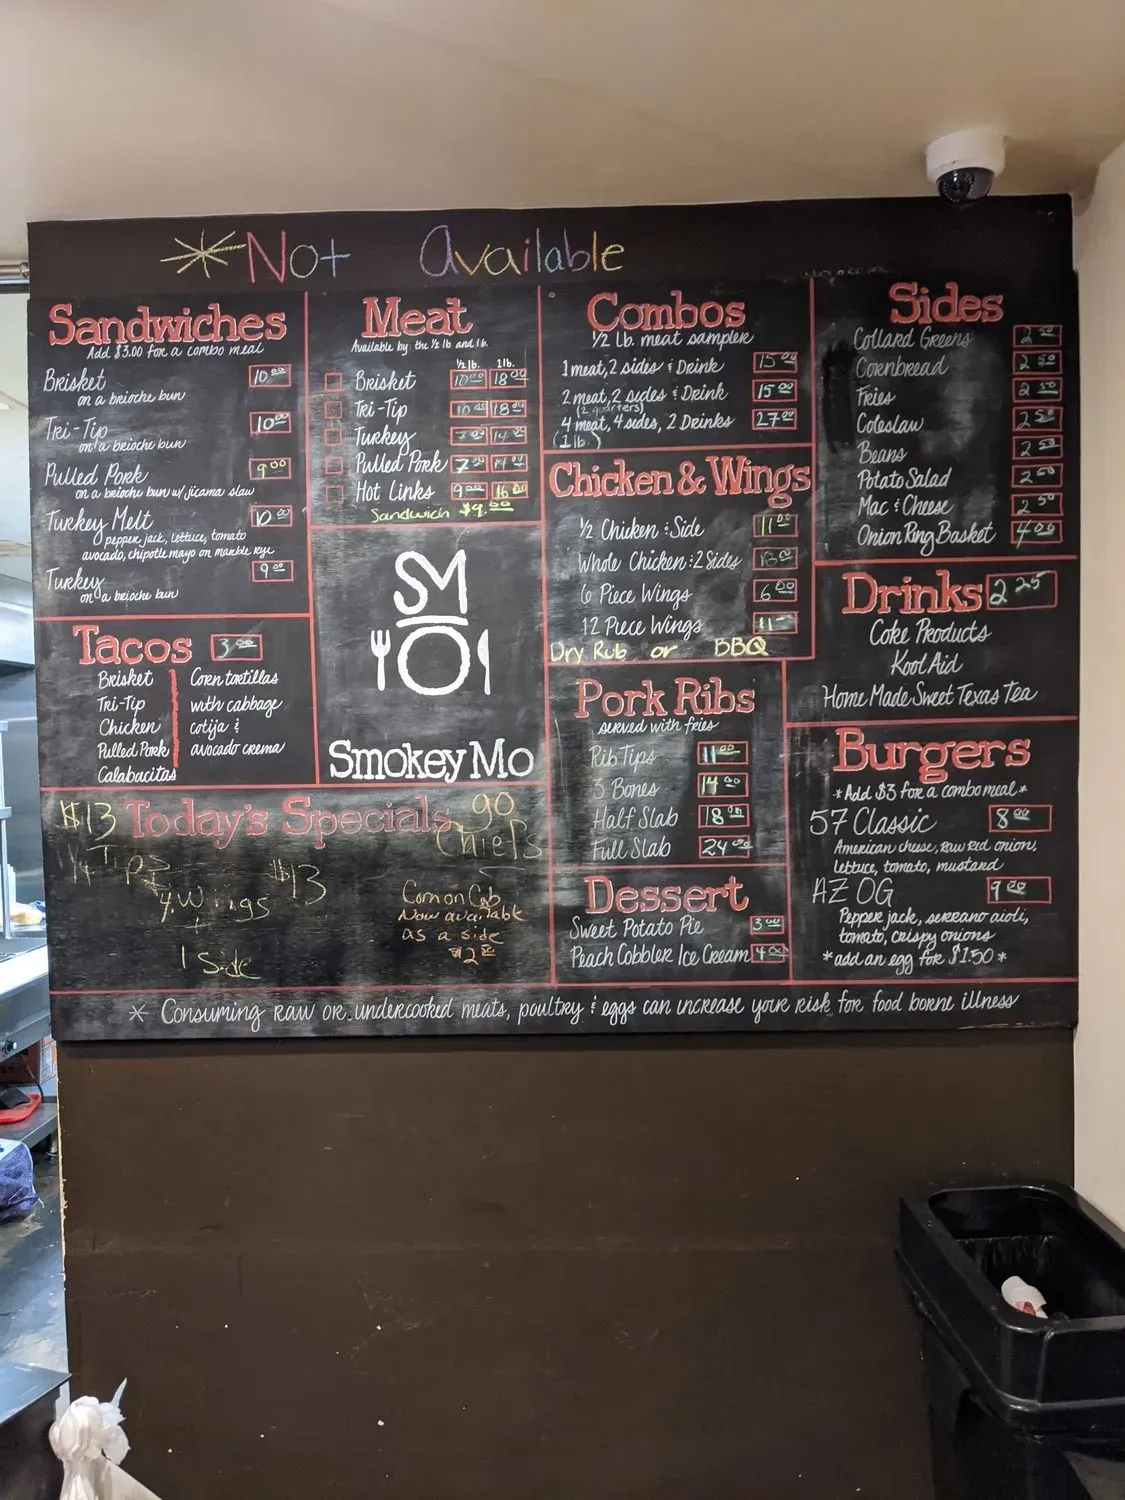 *Not Available
Sandwiches
Add $3.00 for a combo meal
Brisket 10.00
on a brioche bun
Tri-Tip 10.00
on a brioche bun
Pulled Pork 9.00
on a brioche bun w/ jicama slaw
Turkey Melt 10.00
pepper jack, lettuce, tomato
avocado, chipotle mayo on marble rye
Turkey 9.00
on a brioche bun
Tacos 3.00
Brisket
Tri-Tip
Chicken
Pulled Pork
Calabacitas
Corn tortillas
with cabbage
cotija &
avocado crema
Meat
Available by the 1/2 lb and lb.
1/2 lb. 1 lb.
Brisket 10.00 18.00
Tri-Tip 10.00 18.00
Turkey 14.00
Pulled Pork 14.00
Hot Links 9.00 16.00
Sandwich $9.00
SM
Smokey Mo
Combos
1/2 Lb. meat sampler
1 meat, 2 sides & Drink 15.00
2 meat, 2 sides & Drink 15.00
(2 quarters)
4 meat, 4 sides, 2 Drinks 27.00
(1 lb.)
Chicken & Wings
1/2 Chicken & Side 11.00
Whole Chicken & 2 Sides
6 Piece Wings 6.00
12 Piece Wings 11-
Dry Rub or BBQ
Pork Ribs
served with fries
Rib Tips 11.00
3 Bones 14.00
Half Slab 18.00
Full Slab 24.00
Dessert
Sweet Potato Pie 3.00
Peach Cobbler Ice Cream 4.00
Sides
Collard Greens 2.50
Cornbread 2.50
Fries 2.50
Coleslaw 2.50
Beans 2.50
Potato Salad 2.50
Mac & Cheese 2.50
Onion Ring Basket 4.00
Drinks 2.25
Coke Products
Kool Aid
Home Made Sweet Texas Tea
Burgers
*Add $3 for a combo meal*
57 Classic 8.00
American cheese, raw red onion,
lettuce, tomato, mustard
AZ OG 9.00
Pepper jack, serrano aioli,
tomato, crispy onions
*add an egg for $1.50*
$13 Today's Specials go
Chiefs
Tips
4 Wings $13
+
1 Side
Corn on Cob
Now available
as a side
* Consuming raw or undercooked meats, poultry & eggs can increase your risk for food borne illness